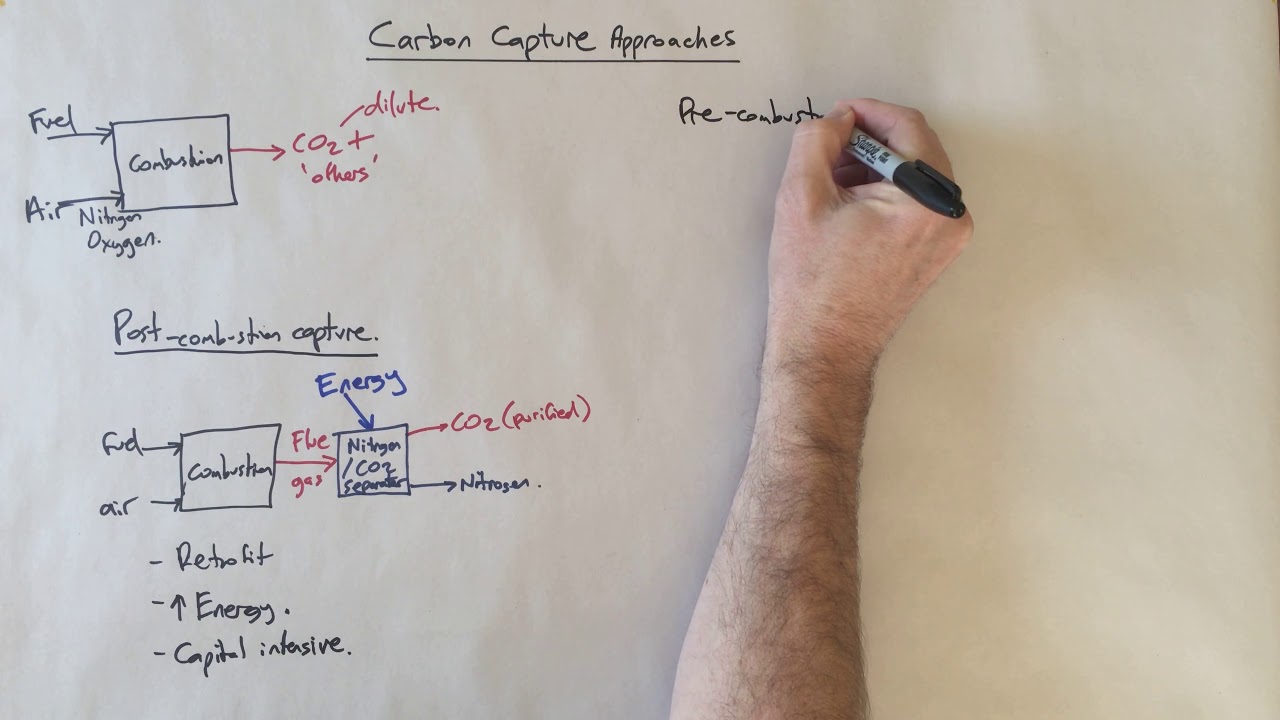 Carbon Capture Approaches
Fuel
Air
Nitrogen
Oxygen.
Combustion
CO2 +
'others'
dilute.
Post-combustion capture.
Energy
Fuel
air
Combustion
Flue
gas
Nitrogen
/CO2
separator
CO2 (purified)
Nitrogen.
- Retrofit
- ↑ Energy.
- Capital intensive.
Pre-combust
Sharpie